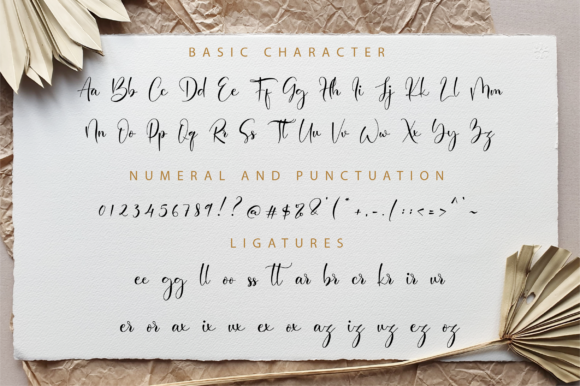 BASIC CHARACTER
Aa Bb Cc Dd Ee Ff Gg Hh Ii Jj Kk Ll Mm
Nn Oo Pp Qq Rr Ss Tt Uu Vv Ww Xx Yy Zz
NUMERAL AND PUNCTUATION
0123456789!?@#$%&'("+,-./:;<=>^`~
LIGATURES
ee gg ll oo ss tt ar br cr kr ir ur
er or ax ix ux ex ox az iz uz ez oz